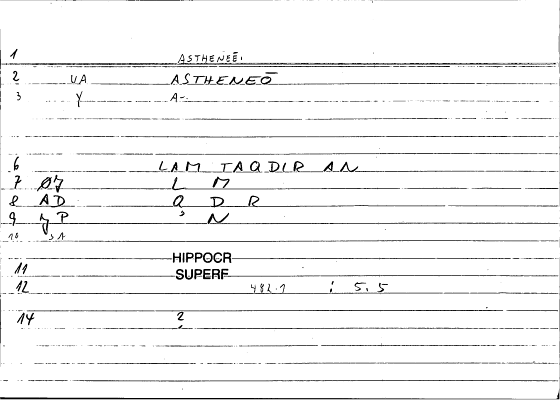 1 ASTHENEĒ:
2 VA ASTHENEŌ
3 Y A-.
6 LAM TAQDIR AN
7 L M
8 AD Q D R
9 YP ' N
10 'A
11 HIPPOCR
SUPERF
12 482.1 : 5.5
14 2